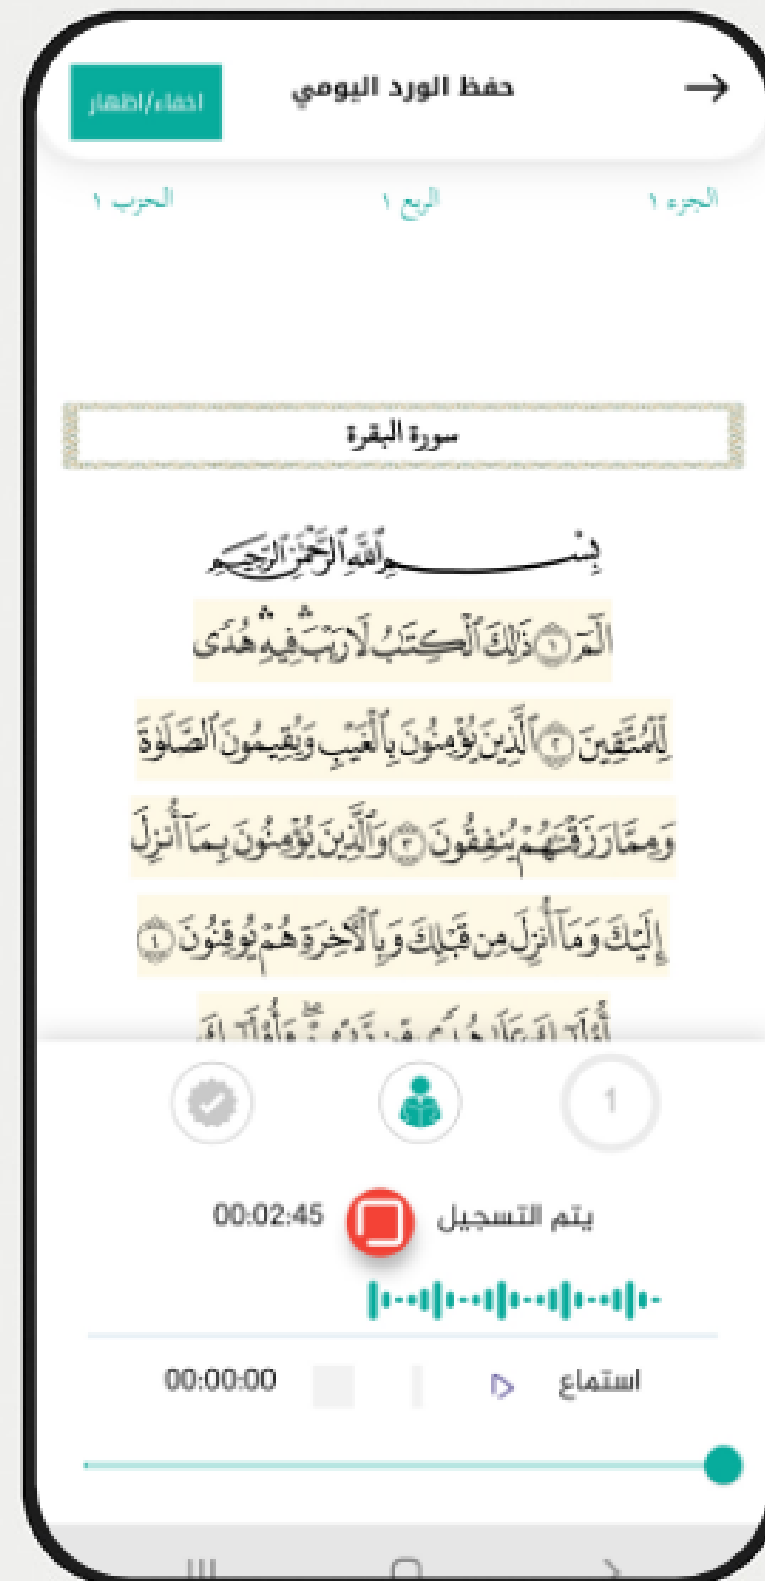 حفظ الورد اليومي
اخفاء/اظهار
الجزء ١ الربع ١ الحزب ١
سورة البقرة
بِسْمِ ٱللَّهِ ٱلرَّحْمَٰنِ ٱلرَّحِيمِ
الٓمٓ ١ ذَٰلِكَ ٱلْكِتَٰبُ لَا رَيْبَ ۛ فِيهِ ۛ هُدًى
لِّلْمُتَّقِينَ ٢ ٱلَّذِينَ يُؤْمِنُونَ بِٱلْغَيْبِ وَيُقِيمُونَ ٱلصَّلَوٰةَ
وَمِمَّا رَزَقْنَٰهُمْ يُنفِقُونَ ٣ وَٱلَّذِينَ يُؤْمِنُونَ بِمَآ أُنزِلَ
إِلَيْكَ وَمَآ أُنزِلَ مِن قَبْلِكَ وَبِٱلْءَاخِرَةِ هُمْ يُوقِنُونَ ٤
1
يتم التسجيل 00:02:45
استماع 00:00:00